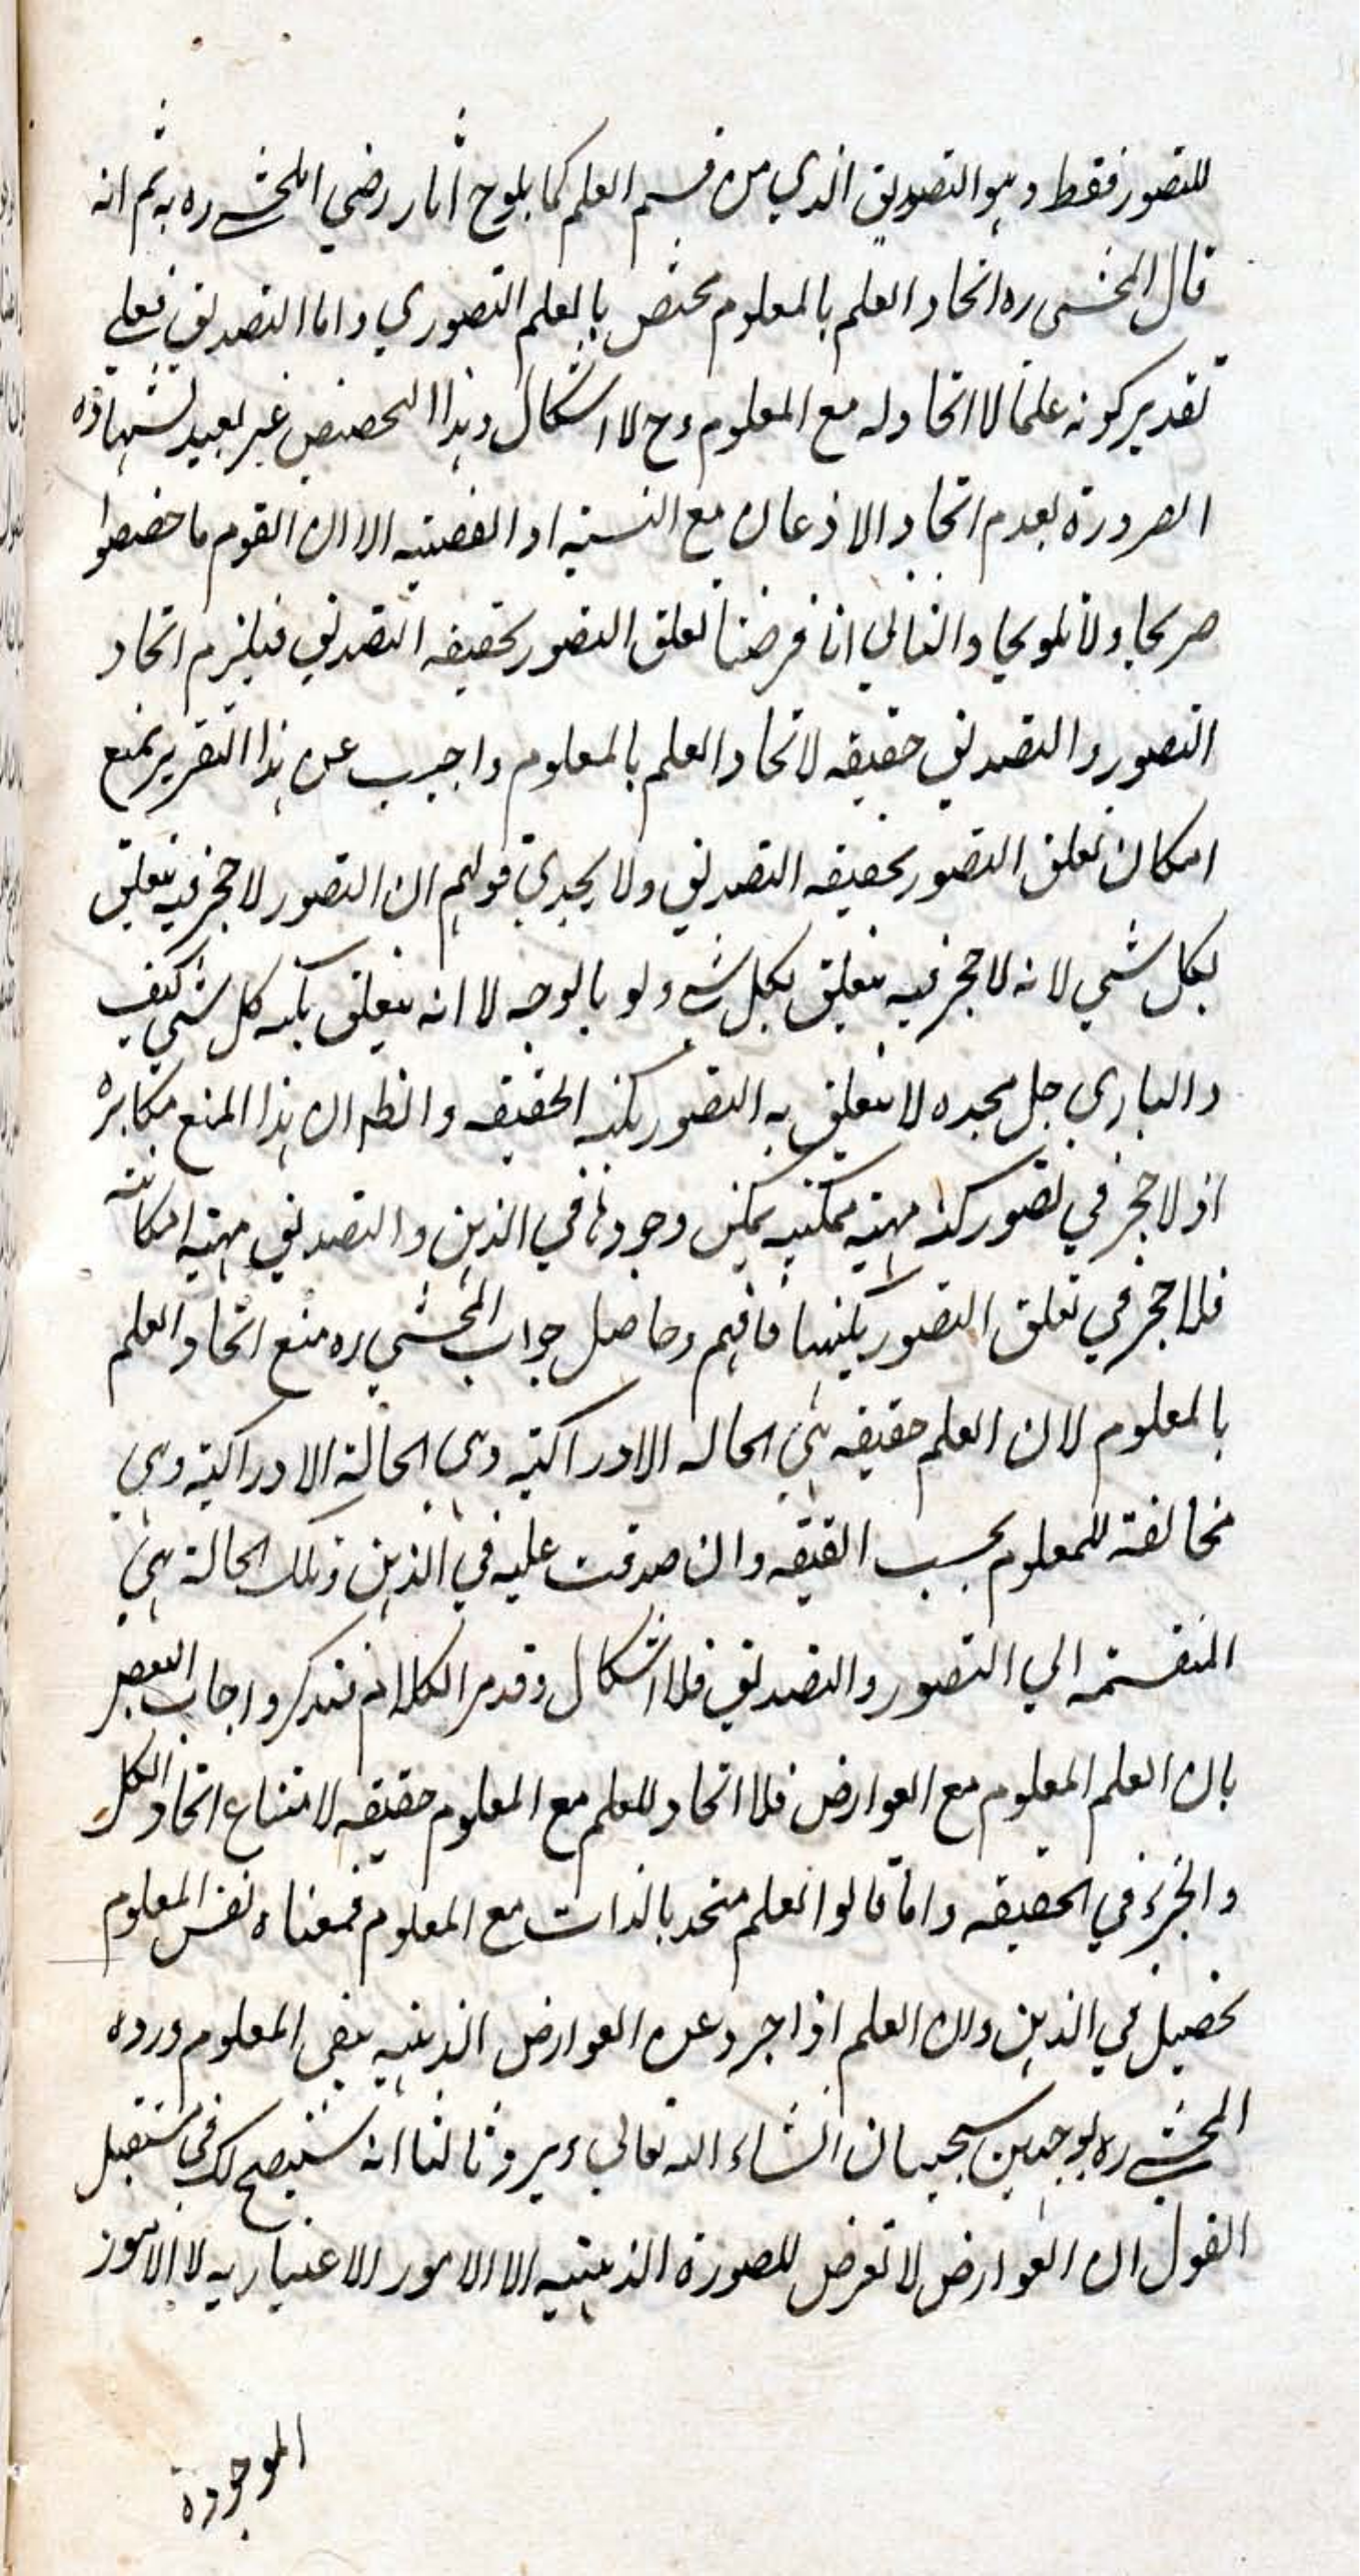 للتصور فقط وهو التصديق الذي من قسم العلم كما يلوح آثار رضي المحشي ره به ثم انه
قال المحشى ره اتحاد العلم بالمعلوم مختص بالعلم التصوري واما التصديق فعلي
تقدير كونه علما لا اتحاد له مع المعلوم وح لا اشكال وهذا التخصيص غير بعيد لشهادة
الضرورة بعدم اتحاد الاذعان مع النسبة او القضية الا ان القوم ما خصصوا
صريحا ولا تلويحا والثاني انا فرضنا تعلق التصور بحقيقه التصديق فيلزم اتحاد
التصور والتصديق حقيقه لاتحاد العلم بالمعلوم واجيب عن هذا التقرير بمنع
امكان تعلق التصور بحقيقه التصديق ولا يجدي قولهم ان التصور لا حجر فيه يتعلق
بكل شي لانه لا حجر فيه يتعلق بكل شي ولو بالوجه لا انه يتعلق بكنه كل شي كيف
والباري جل مجده لا يتعلق به التصور بكنه الحقيقه والظ ان هذا المنع مكابرة
اذ لا حجر في تصور كنه مهية ممكنيه يمكن وجودها في الذهن والتصديق مهية امكانيته
فلا حجر في تعلق التصور بكنهها فافهم وحاصل جواب المحشي ره منع اتحاد العلم
بالمعلوم لان العلم حقيقه هي الحاله الادراكية وهى الحالة الادراكية وهي
مخالفة للمعلوم بحسب القيقه وان صدقت عليه في الذهن وتلك الحالة هي
المنقسمه الي التصور والتصديق فلا اشكال وقد مر الكلام فتذكر واجاب البعض
بان العلم المعلوم مع العوارض فلا اتحاد للعلم مع المعلوم حقيقه لامتناع اتحاد الكل
والجزء في الحقيقه واما قالوا العلم متحد بالذات مع المعلوم فمعناه نفس المعلوم
تحصيل في الذهن ولان العلم اذا جرد عن العوارض الذهنيه يبقى المعلوم ورده
المحشي ره بوجهين سيجيان انشاء الله تعالي ويرد ثالثا انه سيتضح لك في مستقبل
القول ان العوارض لا تعرض للصورة الذهنيه الا الامور الاعتباريه لا الامور
الموجودة